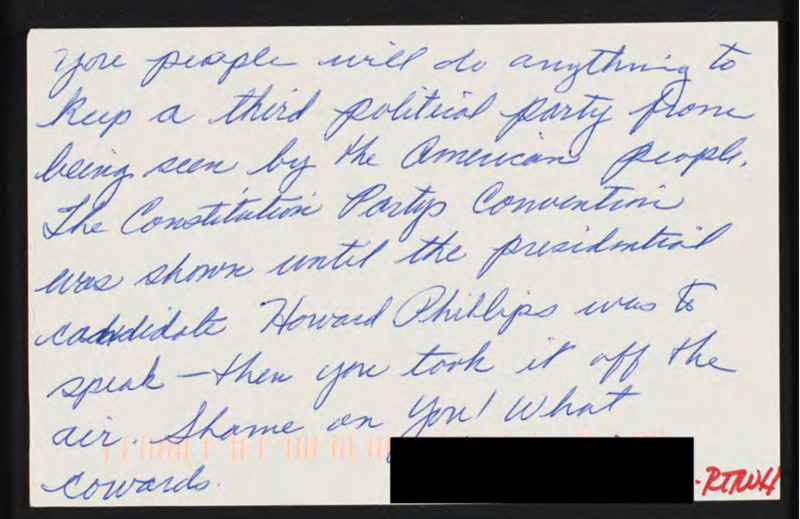 you people will do anything to
keep a third political party from
being seen by the American people.
The Constitution Partys Convention
was shown until the presidential
candidate Howard Phillips was to
speak – then you took it off the
air. Shame on you! What
cowards.
-RTRWH